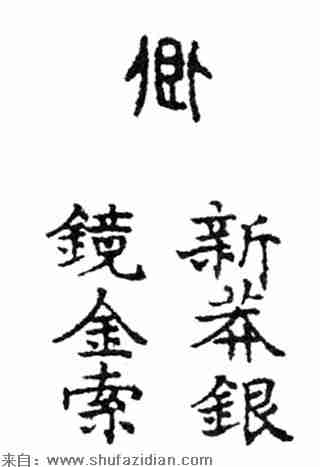 卿
新莽銀
鏡金索
来自：www.shufazidian.com